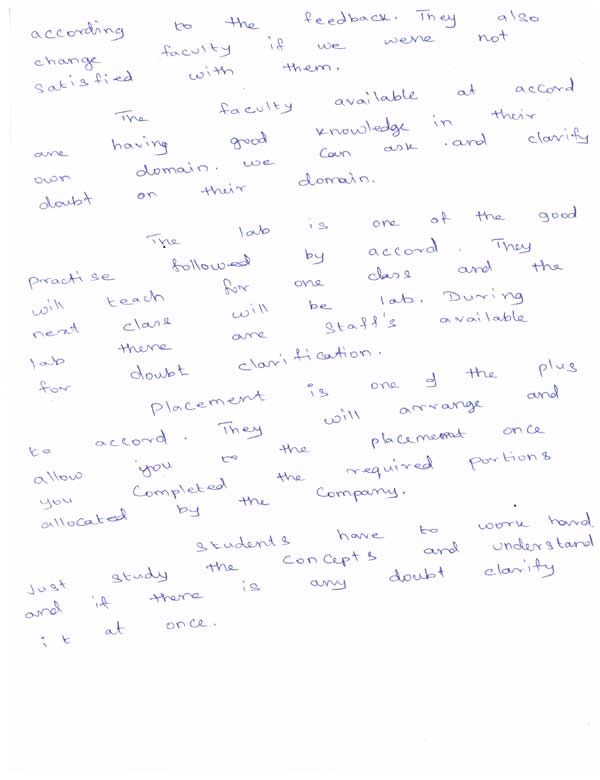 according to the feedback. They also
change faculty if we were not
satisfied with them.
The faculty available at accord
are having good knowledge in their
own domain. we can ask and clarify
doubt on their domain.
The lab is one of the good
practise followed by accord. They
will teach for one class and the
next class will be lab. During
lab there are staff's available
for doubt clarification.
Placement is one of the plus
to accord. They will arrange and
allow you to the placement once
you completed the required portions
allocated by the company.
Students have to work hard.
Just study the concepts and understand
and if there is any doubt clarify
it at once.